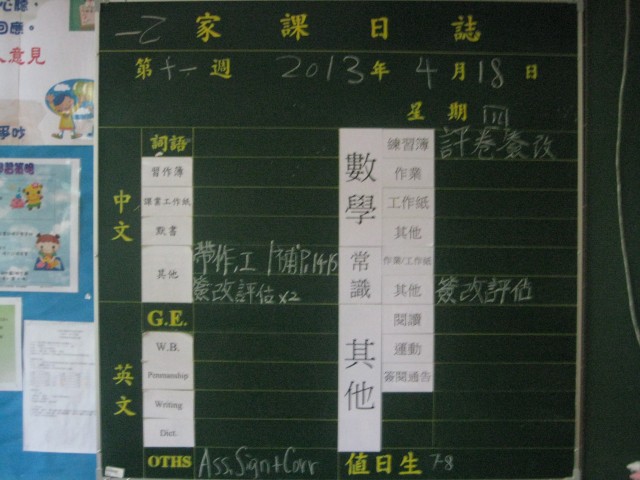 心聽，
回應。
人意見
一乙 家課日誌
第十一週 2013年4月18日
星期四
中文
詞語
習作簿
課堂工作紙
默書
其他 帶作,工 補P.14-15
簽改評估x2
英文
G.E.
W.B.
Penmanship
Writing
Dict.
OTHS Ass. Sign+Corr
數學
練習簿 評卷簽改
作業
工作紙
其他
常識
作業/工作紙
其他 簽改評估
其他
閱讀
運動
簽閱通告
值日生 7-8